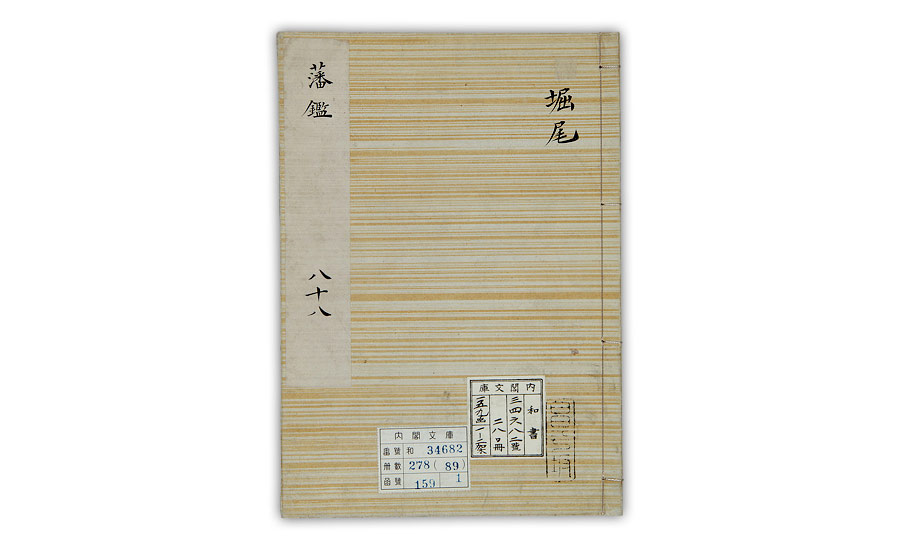 堀尾
藩鑑
八十八
内閣文庫
和書
三四六八二號
二八〇冊
一五九函
内閣文庫
番號 和 34682
冊數 278 (89)
函號 159 1